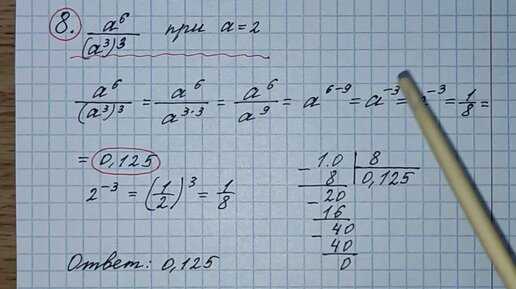 8. a⁶/(a³)³ при a = 2
a⁶/(a³)³ = a⁶/a³·³ = a⁶/a⁹ = a⁶⁻⁹ = a⁻³ = ⁻³ = 1/8 =
= 0,125
2⁻³ = (1/2)³ = 1/8
1.0 | 8
8 | 0,125
20
16
40
40
0
Ответ: 0,125